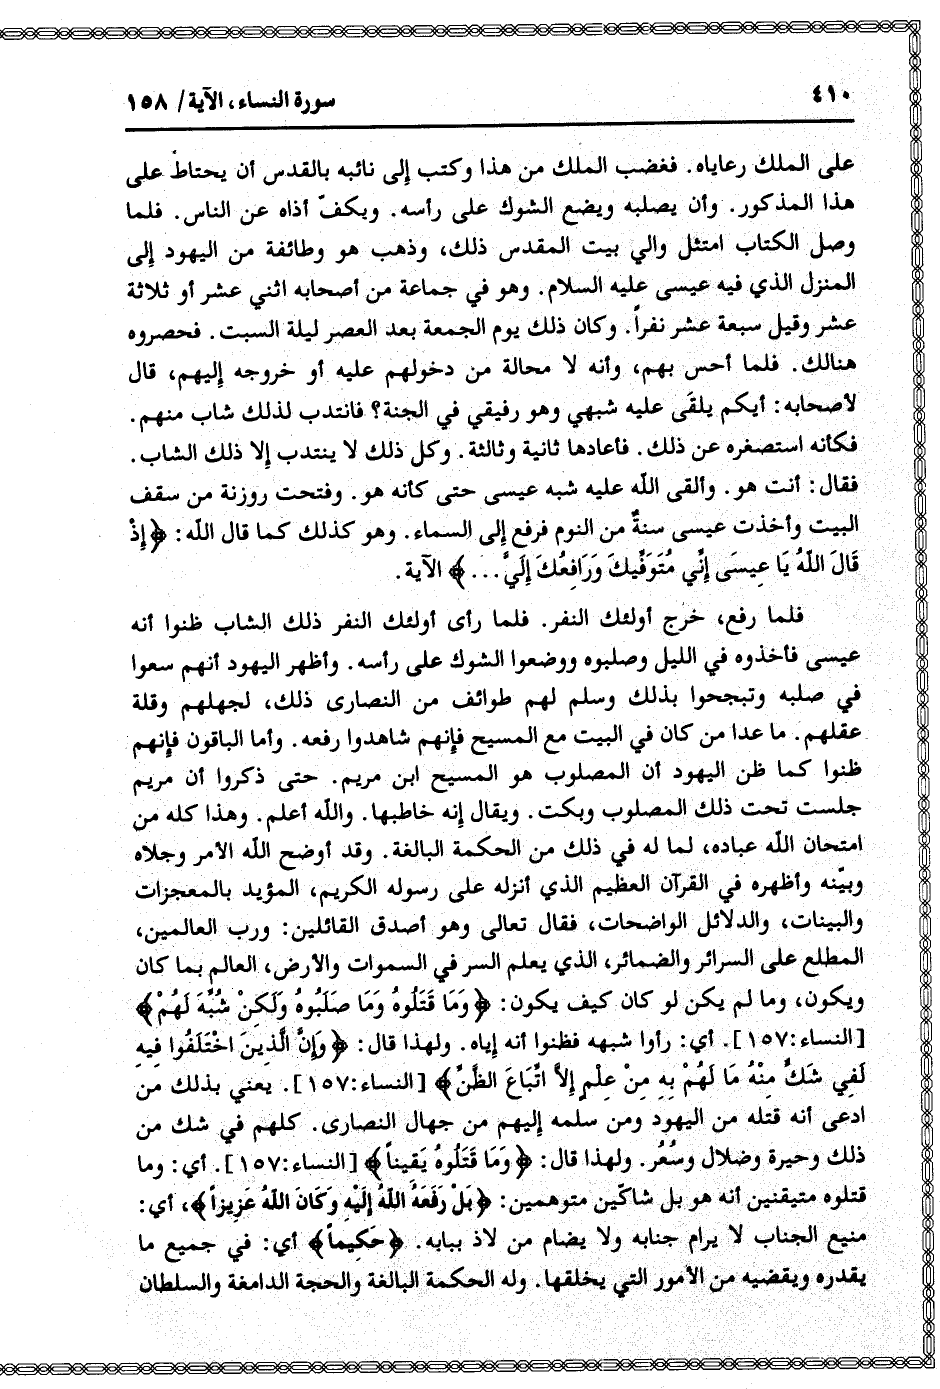 ٤١٠
سورة النساء، الآية/ ١٥٨
على الملك رعاياه. فغضب الملك من هذا وكتب إلى نائبه بالقدس أن يحتاط على
هذا المذكور. وأن يصلبه ويضع الشوك على رأسه. ويكفّ أذاه عن الناس. فلما
وصل الكتاب امتثل والي بيت المقدس ذلك، وذهب هو وطائفة من اليهود إلى
المنزل الذي فيه عيسى عليه السلام. وهو في جماعة من أصحابه اثني عشر أو ثلاثة
عشر وقيل سبعة عشر نفراً. وكان ذلك يوم الجمعة بعد العصر ليلة السبت. فحصروه
هنالك. فلما أحس بهم، وأنه لا محالة من دخولهم عليه أو خروجه إليهم، قال
لأصحابه: أيكم يلقَى عليه شبهي وهو رفيقي في الجنة؟ فانتدب لذلك شاب منهم.
فكأنه استصغره عن ذلك. فأعادها ثانية وثالثة. وكل ذلك لا ينتدب إلا ذلك الشاب.
فقال: أنت هو. وألقى اللّه عليه شبه عيسى حتى كأنه هو. وفتحت روزنة من سقف
البيت وأخذت عيسى سنةٌ من النوم فرفع إلى السماء. وهو كذلك كما قال اللّه: ﴿إِذْ
قَالَ اللّهُ يَا عِيسَى إِنِّي مُتَوَفِّيكَ وَرَافِعُكَ إِلَيَّ...﴾ الآية.
فلما رفع، خرج أولئك النفر. فلما رأى أولئك النفر ذلك الشاب ظنوا أنه
عيسى فأخذوه في الليل وصلبوه ووضعوا الشوك على رأسه. وأظهر اليهود أنهم سعوا
في صلبه وتبجحوا بذلك وسلم لهم طوائف من النصارى ذلك، لجهلهم وقلة
عقلهم. ما عدا من كان في البيت مع المسيح فإنهم شاهدوا رفعه. وأما الباقون فإنهم
ظنوا كما ظن اليهود أن المصلوب هو المسيح ابن مريم. حتى ذكروا أن مريم
جلست تحت ذلك المصلوب وبكت. ويقال إنه خاطبها. واللّه أعلم. وهذا كله من
امتحان اللّه عباده، لما له في ذلك من الحكمة البالغة. وقد أوضح اللّه الأمر وجلاه
وبيّنه وأظهره في القرآن العظيم الذي أنزله على رسوله الكريم، المؤيد بالمعجزات
والبينات، والدلائل الواضحات، فقال تعالى وهو أصدق القائلين: ورب العالمين،
المطلع على السرائر والضمائر، الذي يعلم السر في السموات والأرض، العالم بما كان
ويكون، وما لم يكن لو كان كيف يكون: ﴿وَمَا قَتَلُوهُ وَمَا صَلَبُوهُ وَلَكِنْ شُبِّهَ لَهُمْ﴾
[النساء:١٥٧]. أي: رأوا شبهه فظنوا أنه إياه. ولهذا قال: ﴿وَإِنَّ الَّذِينَ اخْتَلَفُوا فِيهِ
لَفِي شَكٍّ مِنْهُ مَا لَهُمْ بِهِ مِنْ عِلْمٍ إِلاَّ اتِّبَاعَ الظَّنِّ﴾ [النساء:١٥٧]. يعني بذلك من
ادعى أنه قتله من اليهود ومن سلمه إليهم من جهال النصارى. كلهم في شك من
ذلك وحيرة وضلال وسُعُر. ولهذا قال: ﴿وَمَا قَتَلُوهُ يَقِيناً﴾ [النساء:١٥٧]. أي: وما
قتلوه متيقنين أنه هو بل شاكّين متوهمين: ﴿بَلْ رَفَعَهُ اللّهُ إِلَيْهِ وَكَانَ اللّهُ عَزِيزاً﴾، أي:
منيع الجناب لا يرام جنابه ولا يضام من لاذ ببابه. ﴿حَكِيماً﴾ أي: في جميع ما
يقدره ويقضيه من الأمور التي يخلقها. وله الحكمة البالغة والحجة الدامغة والسلطان